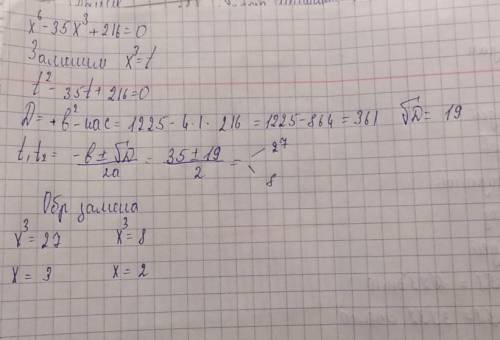 x⁶-35x³+216=0
Заменим x³=t
t²-35t+216=0
D=+b²-4ac=1225-4·1·216=1225-864=361 √D=19
t₁t₂= (-b±√D)/2a = (35±19)/2 = 27
8
Обр замена
x³=27 x³=8
x=3 x=2